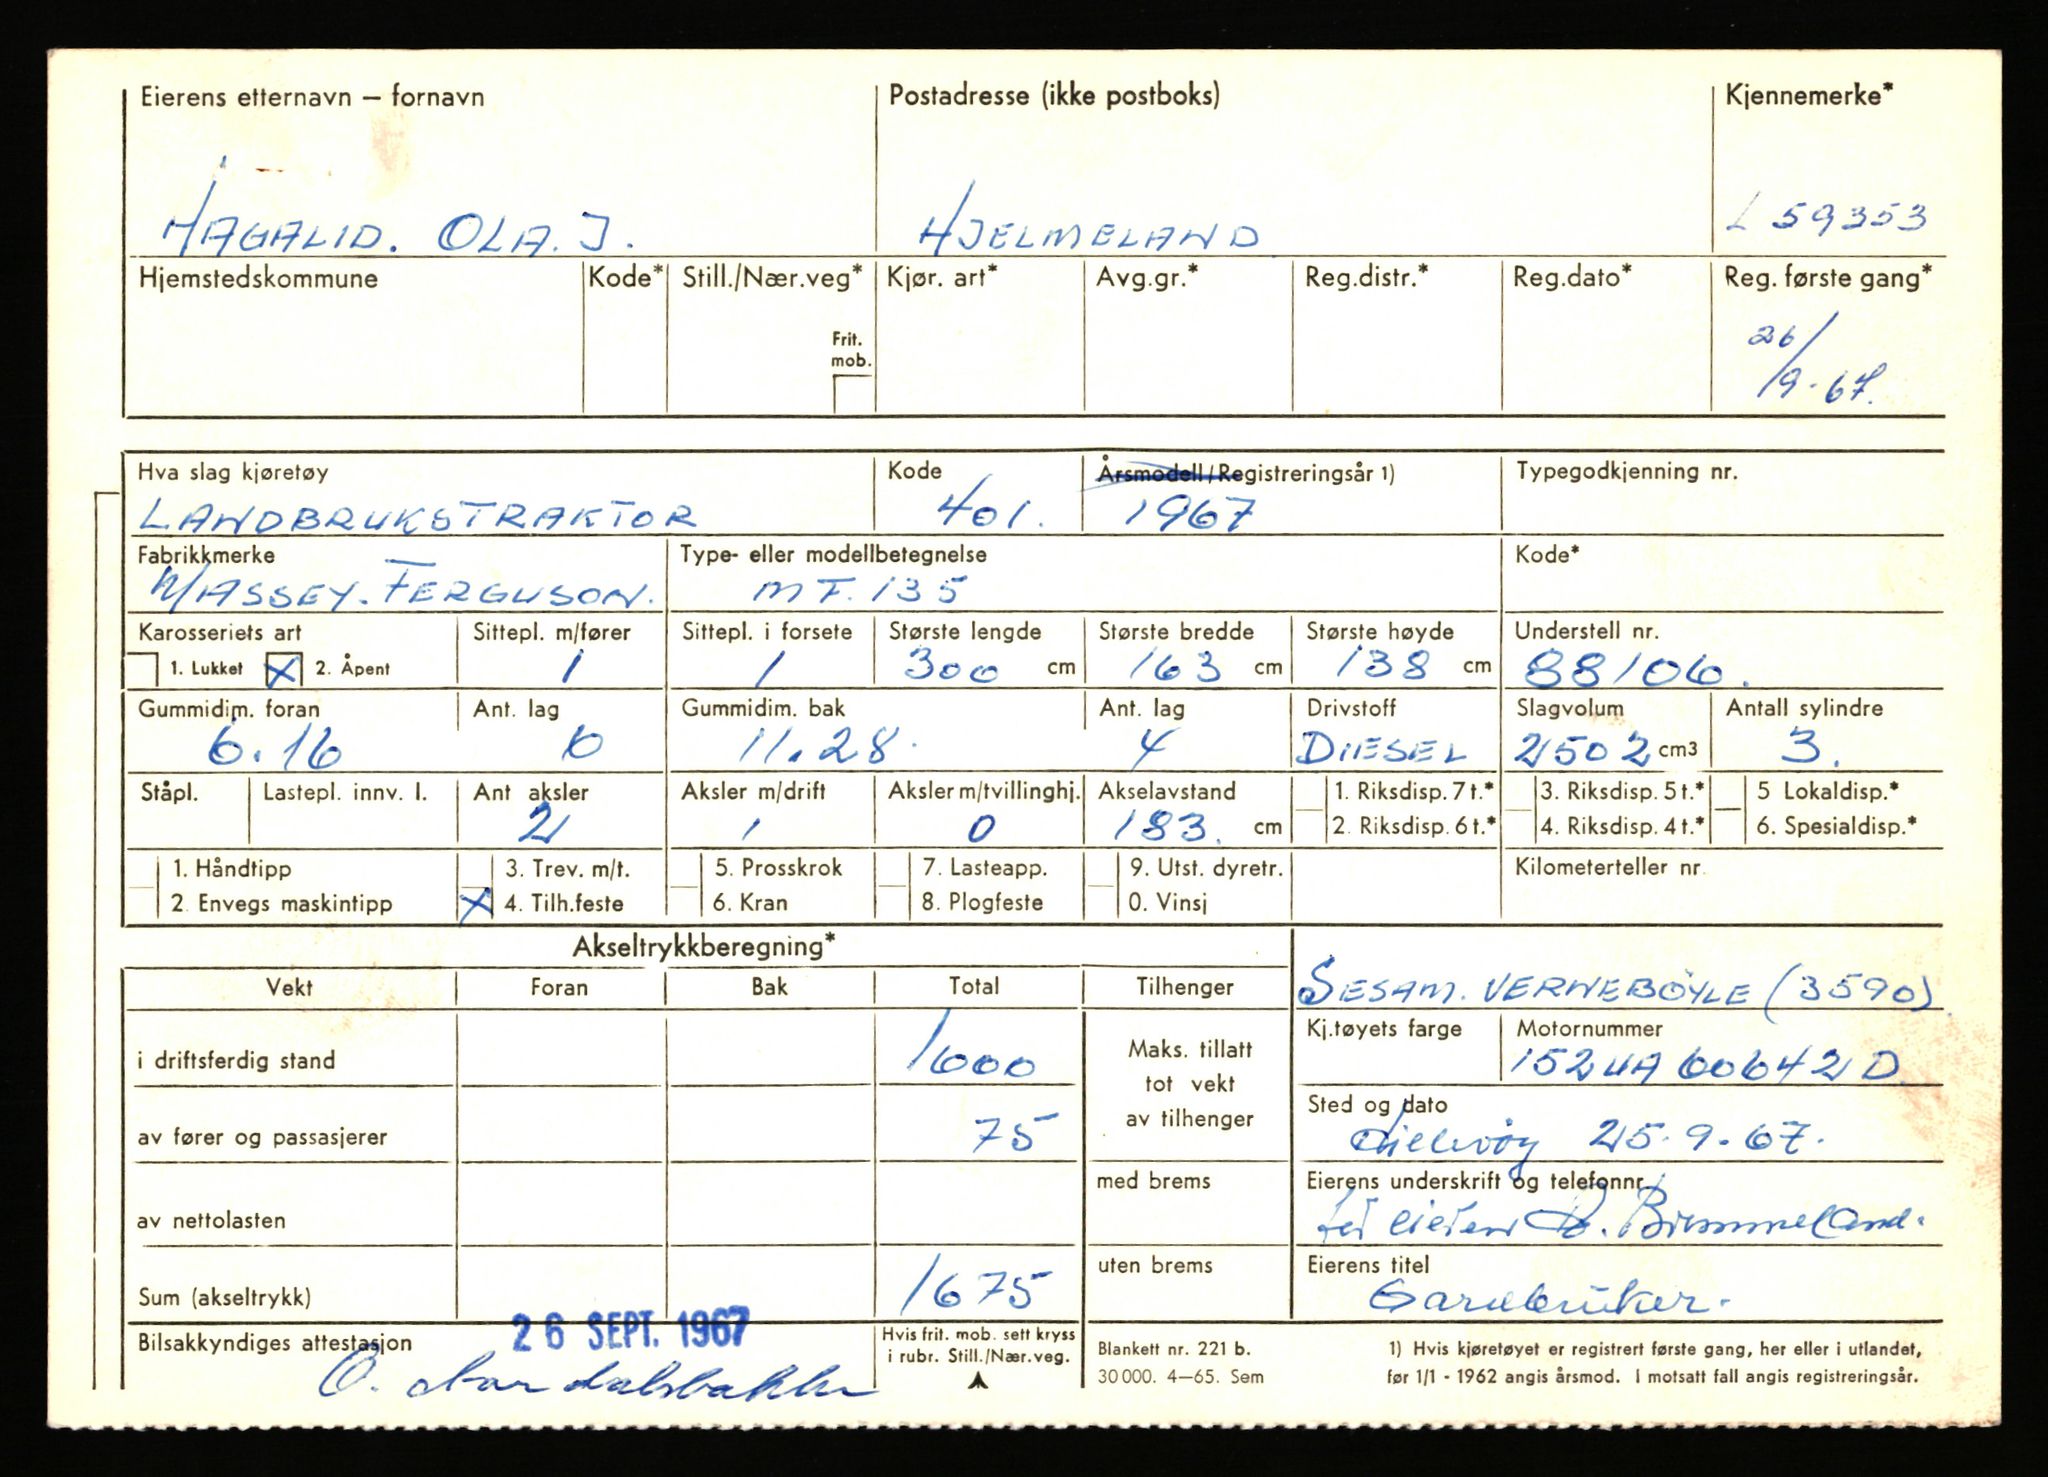 Eierens etternavn – fornavn Postadresse (ikke postboks) Kjennemerke*
HAGALID. OLA. J. HJELMELAND L 59353
Hjemstedskommune Kode* Still./Nær.veg* Kjør. art* Avg.gr.* Reg.distr.* Reg.dato* Reg. første gang*
Frit. mob.
26/9-67.
Hva slag kjøretøy Kode Årsmodell/Registreringsår 1) Typegodkjenning nr.
LANDBRUKSTRAKTOR 401. 1967
Fabrikkmerke Type- eller modellbetegnelse Kode*
MASSEY. FERGUSON. MF. 135
Karosseriets art Sittepl. m/fører Sittepl. i forsete Største lengde Største bredde Største høyde Understell nr.
1. Lukket X 2. Åpent 1 1 300 cm 163 cm 138 cm 88106.
Gummidim. foran Ant. lag Gummidim. bak Ant. lag Drivstoff Slagvolum Antall sylindre
6.16 6 11.28. 4 DIESEL 2502 cm3 3.
Ståpl. Lastepl. innv. l. Ant aksler Aksler m/drift Aksler m/tvillinghj. Akselavstand 1. Riksdisp. 7 t.* 3. Riksdisp. 5 t.* 5 Lokaldisp.*
2 1 0 183. cm 2. Riksdisp. 6 t.* 4. Riksdisp. 4 t.* 6. Spesialdisp.*
1. Håndtipp 3. Trev. m/t. 5. Prosskrok 7. Lasteapp. 9. Utst. dyretr. Kilometerteller nr.
2. Envegs maskintipp X 4. Tilh.feste 6. Kran 8. Plogfeste 0. Vinsj
Akseltrykkberegning*
Vekt Foran Bak Total Tilhenger SESAM. VERNEBÖYLE (3590)
Kj.tøyets farge Motornummer
i driftsferdig stand 1600 Maks. tillatt tot vekt av tilhenger 152UA60642D
Sted og dato
av fører og passasjerer 75 25.9.67.
med brems Eierens underskrift og telefonnr.
av nettolasten for eieren Brommeland.
uten brems Eierens titel
Sum (akseltrykk) 1675 Gardbruker.
26 SEPT. 1967
Bilsakkyndiges attestasjon Hvis frit. mob. sett kryss i rubr. Still./Nær.veg.
O.
Blankett nr. 221 b. 1) Hvis kjøretøyet er registrert første gang, her eller i utlandet,
30 000. 4–65. Sem før 1/1 - 1962 angis årsmod. I motsatt fall angis registreringsår.